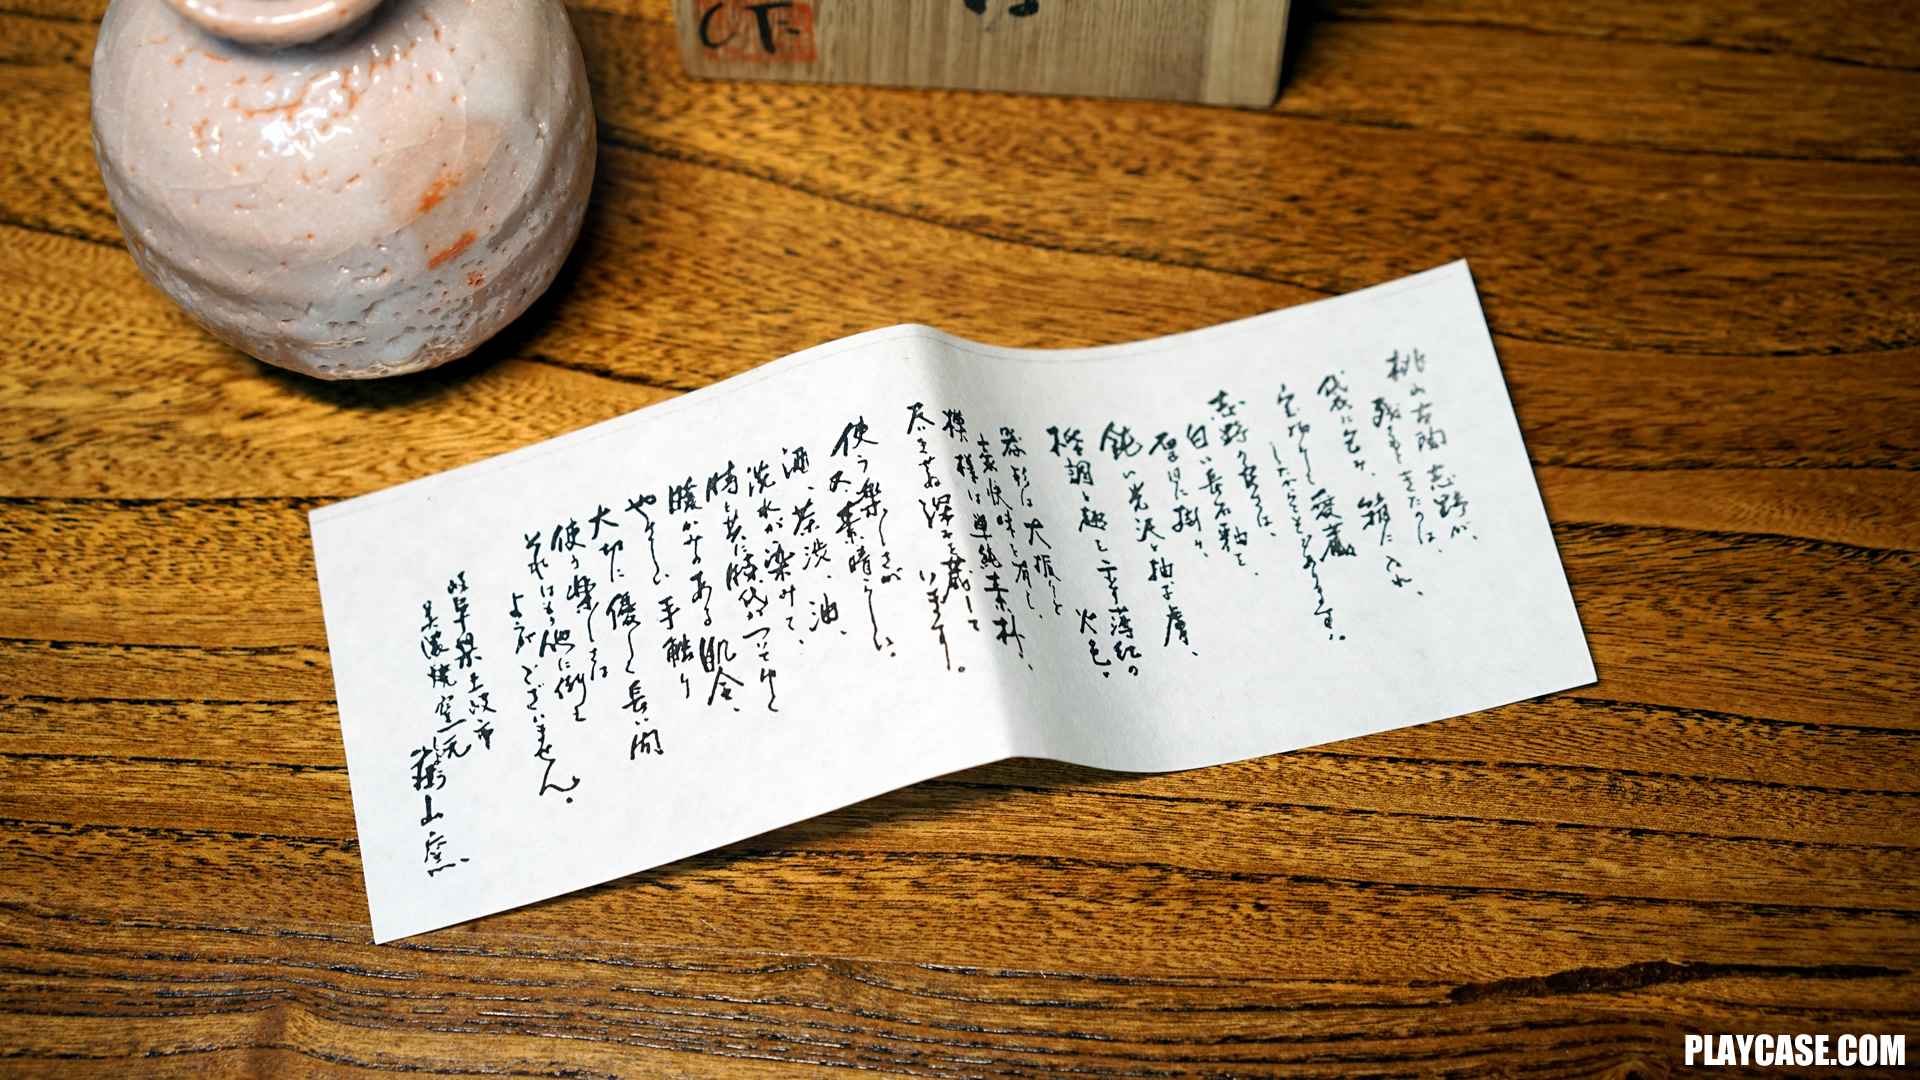 桃山古陶志野が、
残ってきたのは、
袋に包み、箱に入れ、
宝物として愛蔵
したからこそであります。
志野の良さは、
白い長石釉と、
掛り、
鈍い光沢と柚子膚、
格調と趣と言う薄紅の
火色。
器形は大振りと
豪快味を有し、
模様は単純素朴、
尽きせぬ深みを蔵して
います。
使う楽しさが
又素晴らしい。
酒、茶渋、油、
洗水が染みて、
時と共に時代がついてゆく
暖かみのある肌合、
やさしい手触り
大切に優しく長い間
使う楽しさは
それはもう他に例え
ようがございません。
岐阜県土岐市
美濃焼窯元
山窯
PLAYCASE.COM